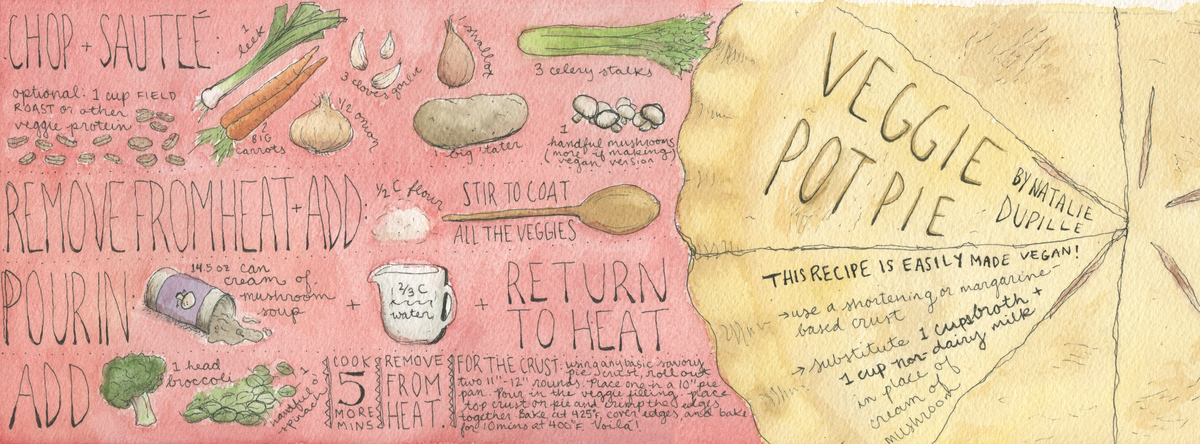 CHOP + SAUTEÉ:
1 leek
3 cloves garlic
1 shallot
3 celery stalks
optional: 1 cup FIELD
ROAST or other
veggie protein
2
BIG
carrots
1/2 onion
1 big 'tater
1
handful mushrooms
(more if making
vegan version
REMOVE FROM HEAT + ADD:
1/2 C flour
STIR TO COAT
ALL THE VEGGIES
POUR IN:
14.5 oz can
cream of
mushroom
soup
+
2/3 C
water
+
RETURN
TO HEAT
ADD
1 head
broccoli
1
handful
spinach
COOK
5
MORE
MINS
REMOVE
FROM
HEAT.
FOR THE CRUST: using any basic savory
pie crust, roll out
two 11"-12" rounds. Place one in a 10" pie
pan. Pour in the veggie filling, place
top crust on pie and crimp the edges
together. Bake at 425°F, cover edges, and bake
for 10 mins at 400°F. Voila!
VEGGIE
POT PIE
BY NATALIE
DUPILLE
THIS RECIPE IS EASILY MADE VEGAN!
→use a shortening or margarine-
based crust
→substitute 1 cups broth +
1 cup non-dairy milk
in place of
cream of
mushroom